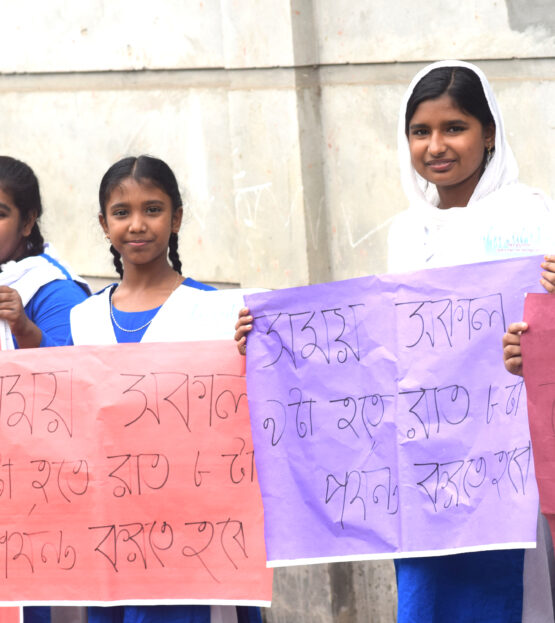 সময় সকাল
টা হতে রাত ৮ টা
পর্যন্ত করতে হবে
সময় সকাল
৯টা হতে রাত ৮টা
পর্যন্ত করতে হবে